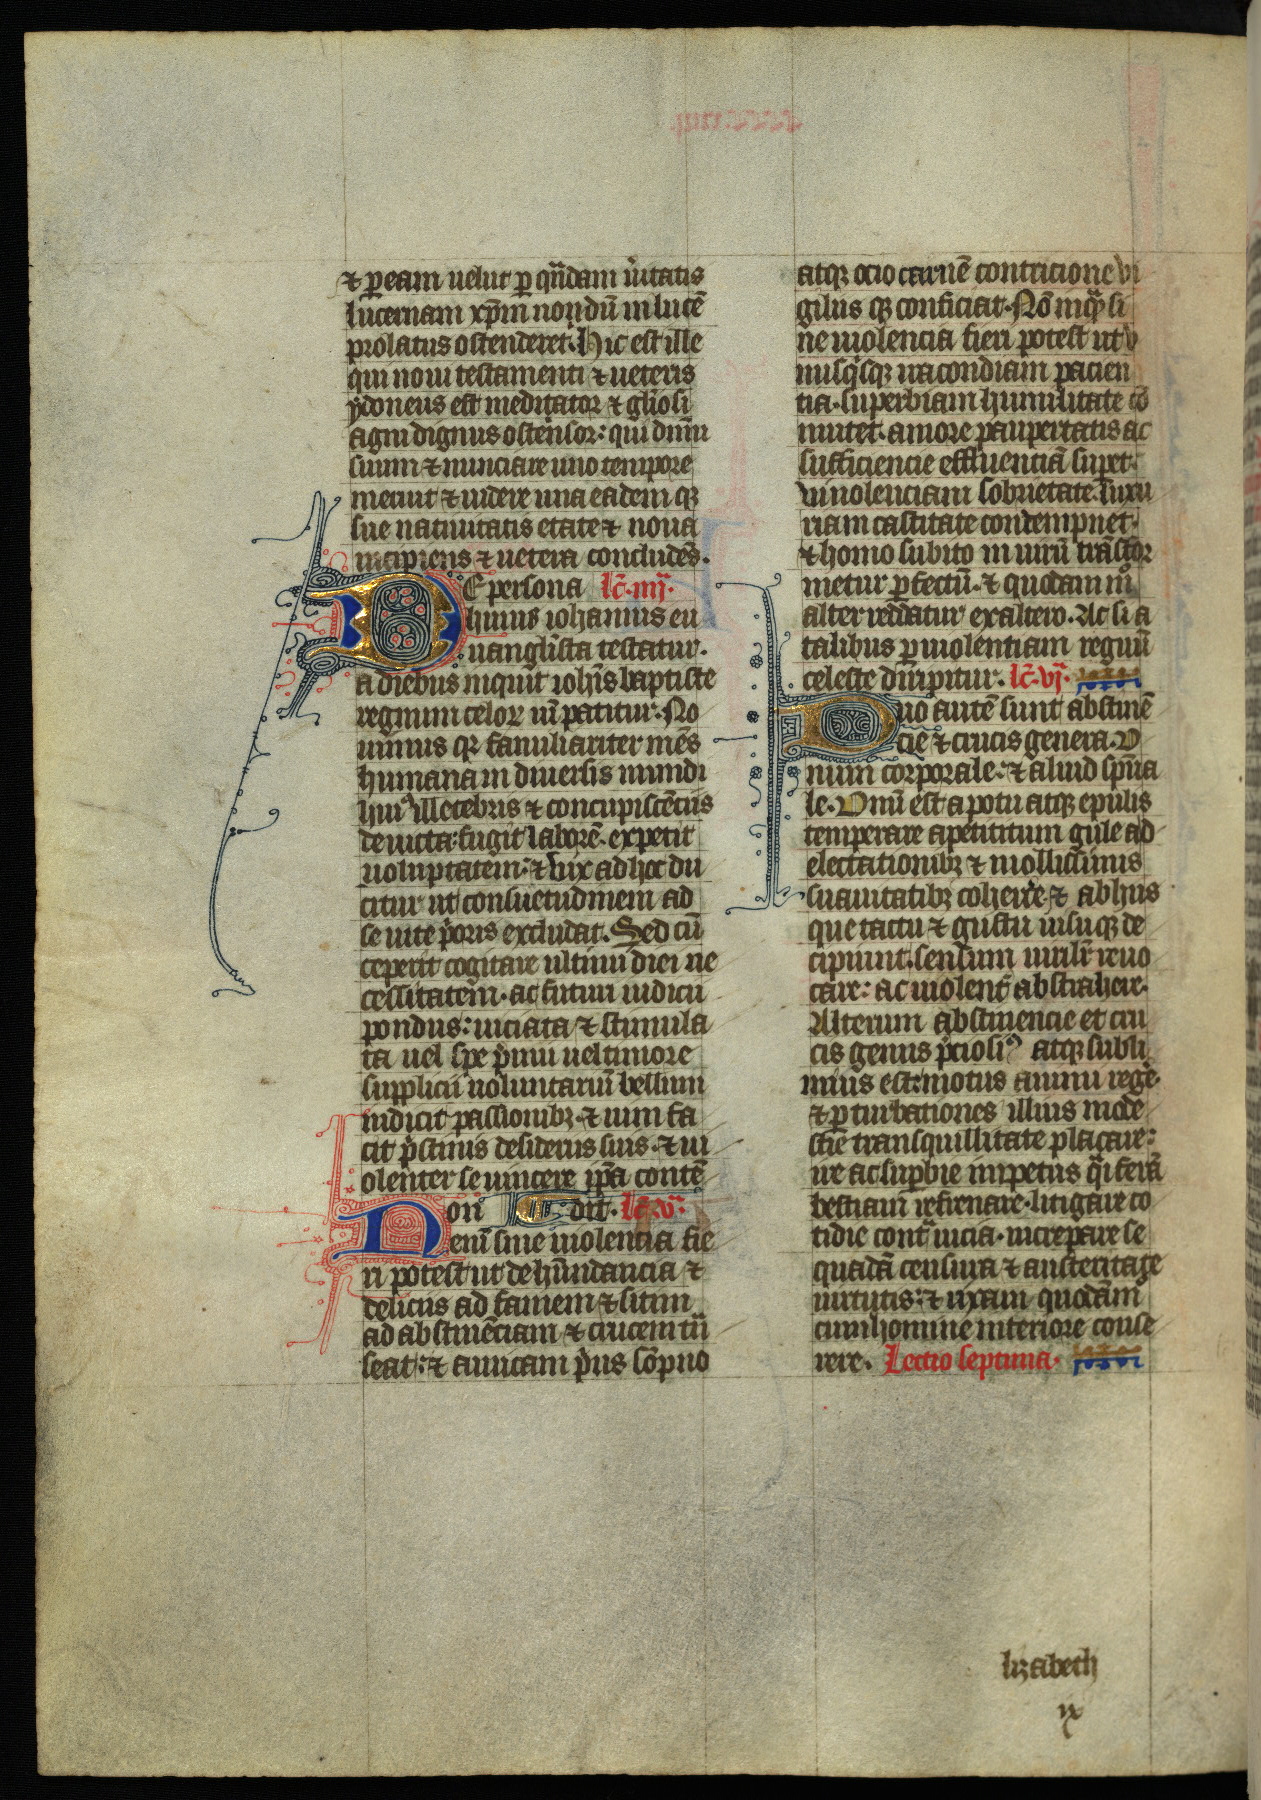 ⁊ ꝑ eam uelut ꝑ qͣndam ũitatis
lucernam xp̄m nondū in lucē
prolatus ostenderet. Hic est ille
qui noui testamenti ⁊ ueteris
ydoneus est meditator ⁊ glīosi
agni dignus ostensor: qui dnm̄
suum ⁊ nunciare uno tempore
meruit ⁊ uidere una eadem qꝫ
sue natiuitatis etate ⁊ noua
incipiens ⁊ uetera concludēs.
De persona lc̄. iiij.
huius iohannis eu
uangl̄ista testatur.
a diebus inquit ioh̄is baptiste
regnum celoꝝ uī patitur. No
uimus qꝛ familiariter mēs
humana in diuersis mundi
huiꝰ illecebris ⁊ concupiscēciis
deuicta: fugit laborē. expetit
uoluptatem: ⁊ uix ad hoc du
citur ut consuetudinem ad
se uite p̄oris excludat. Sed cū
ceperit cogitare ultimi diei ne
cessitatem. ac futuri iudicii
pondus: uiciata ⁊ stimula
ta uel spe p̄mii uel timore
supplicii uoluntariū bellum
indicit passionibꝫ. ⁊ uim fa
cit p̄stinis desideriis suis. ⁊ ui
olenter se uincere ip̄a contē
dit. lc̄. v.
Non
enī sine uiolencia fie
ri potest ut de habūndancia ⁊
deliciis ad famem ⁊ sitim
ad abstinēciam ⁊ crucem tū
seat: ⁊ amicam p̄us sōpno
atqꝫ ocio carnē contricione vi
giliis qꝫ conficiat. Nō inqͣ si
ne uiolencia fieri potest ut v
nusqͥsqꝫ iracondiam pacien
tia. superbiam humilitate cō
mutet. amore paupertatis ac
sufficiencie effluentiā supet.
vinolenciam sobrietate. luxu
riam castitate contempnet.
⁊ homo subito in uirū trāsfor
metur ꝑfectū. ⁊ quodam mͦ
alter reddatur ex altero. Ac si a
talibus ꝑ uiolentiam regnū
celeste diripitur. lc̄. vj.
Duo autē sunt abstinē
cie ⁊ crucis genera. V
num corporale: ⁊ aliud sp̄ua
le. Vnū est a potu atqꝫ epulis
temperare apetititum gule ad
electationibꝫ ⁊ mollissimis
suauitatibꝫ coherc̄e. ⁊ ab hiis
que tactu ⁊ gustu uisuqꝫ de
cipiunt. sensum uirilr̄ reuo
care: ac uiolent̄ abstrahere.
Alterum abstinencie et cru
cis genus p̄ciosiꝰ atqꝫ subli
mius est: motus animi rege.
⁊ ꝑturbationes illius mode
stie transquillitate placare:
ire ac suꝑbie inpetus qͣi ferā
bestiam refrenare. litigare co
tidie contͣ uicia. increpare se
quadā censura ⁊ austeritate
uirtutis: ⁊ rixam quodām
cum homine interiore conse
rere. Lectio septima.
lizabeth
ix